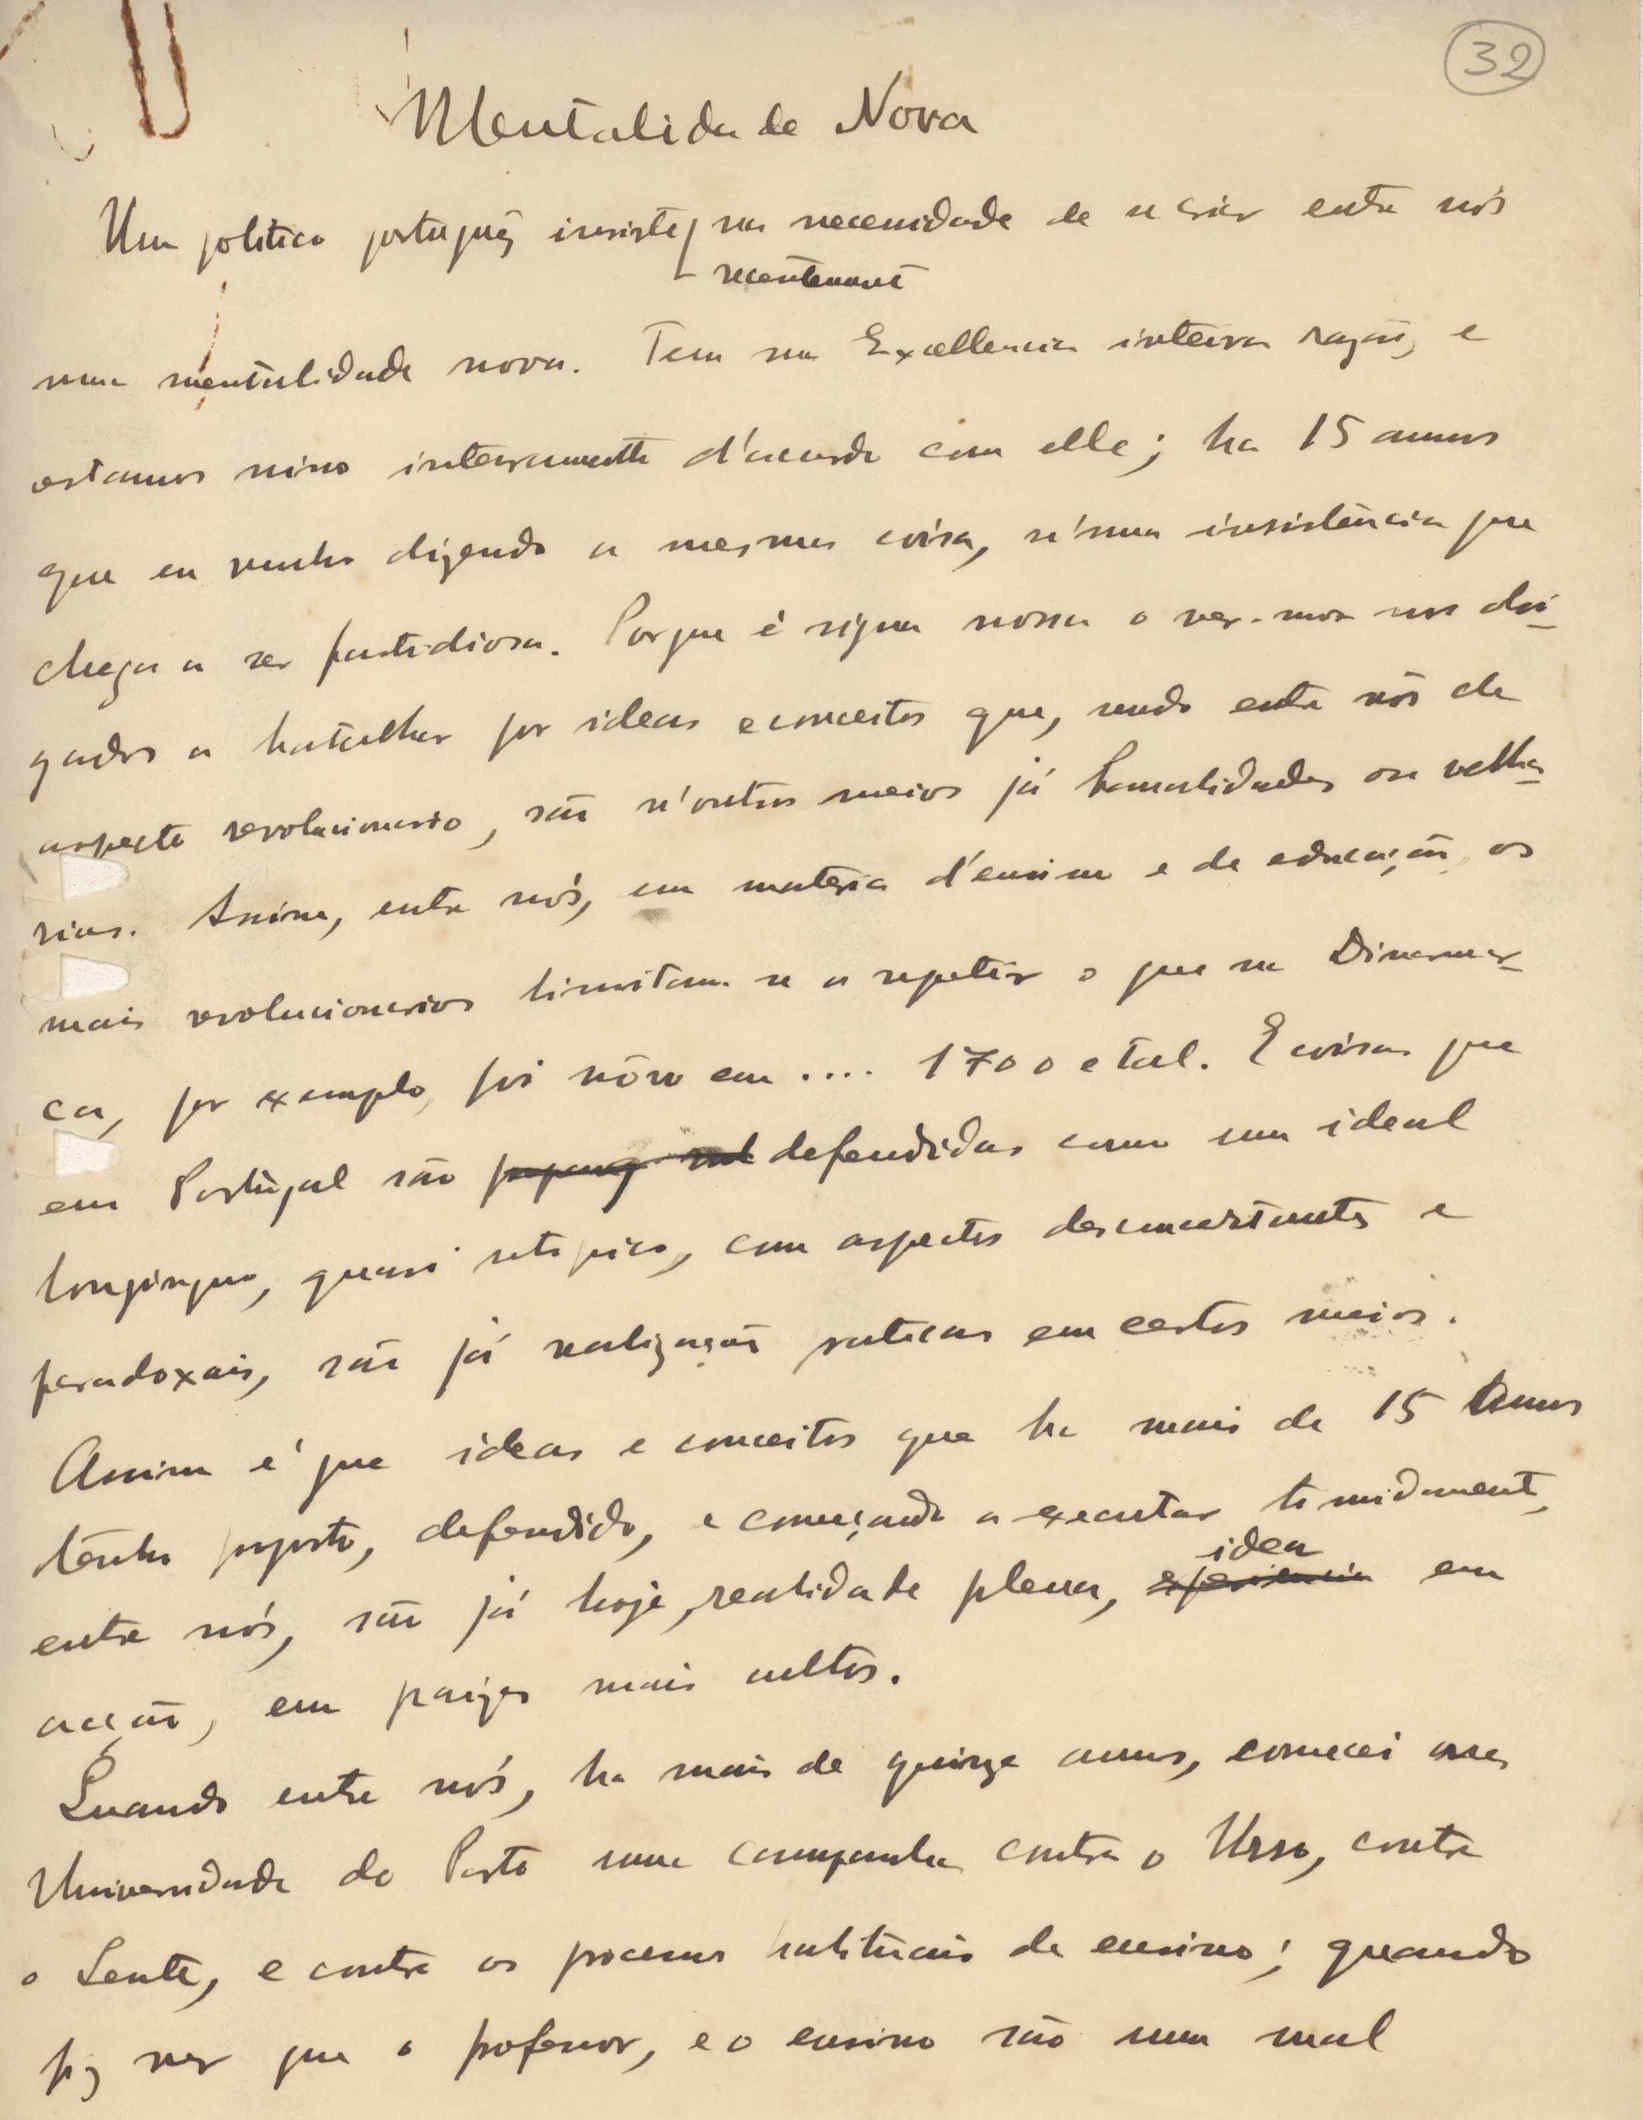 32
Mentalidade Nova
Um politico português insiste na necessidade de se criar entre nós
recentemente
uma mentalidade nova. Tem sua Excellencia inteira razão, e
estamos nisso inteiramente d'acordo com elle; ha 15 annos
que eu venho dizendo a mesma coisa, n'uma insistência que
chega a ser fastidiosa. Porque é signa nossa o ver-mos nos obri-
gados a batalhar por ideas e conceitos que, sendo entre nós de
aspecto revolucionario, são n'outros meios já banalidades ou velha-
rias. Assim, entre nós, em materia d'ensino e de educação, os
mais revolucionarios limitam-se a repetir o que na Dinamar-
ca, por exemplo, foi nôvo em .... 1700 e tal. E coisas que
em Portugal são defendidas como um ideal
longinquo, quasi utopico, com aspectos desconcertantes e
paradoxais, são já realizações praticas em certos meios.
Assim é que ideas e conceitos que ha mais de 15 annos
tenho proposto, defendido, e começando a executar timidamente,
idea
entre nós, são já hoje, realidade plena, experiencia em
acção, em paizes mais cultos.
Quando entre nós, ha mais de quinze annos, comecei na
Universidade do Porto uma campanha contra o Urso, contra
o Lente, e contra os processos habituais de ensino; quando
fiz ver que o professor, e o ensino são um mal